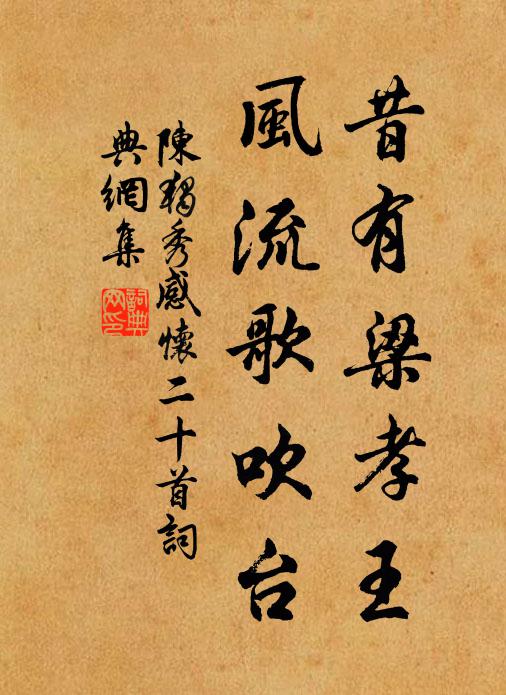 昔有梁孝王
風流歌吹台
陳獨秀感懷二十首詞
典網集
詞典網印